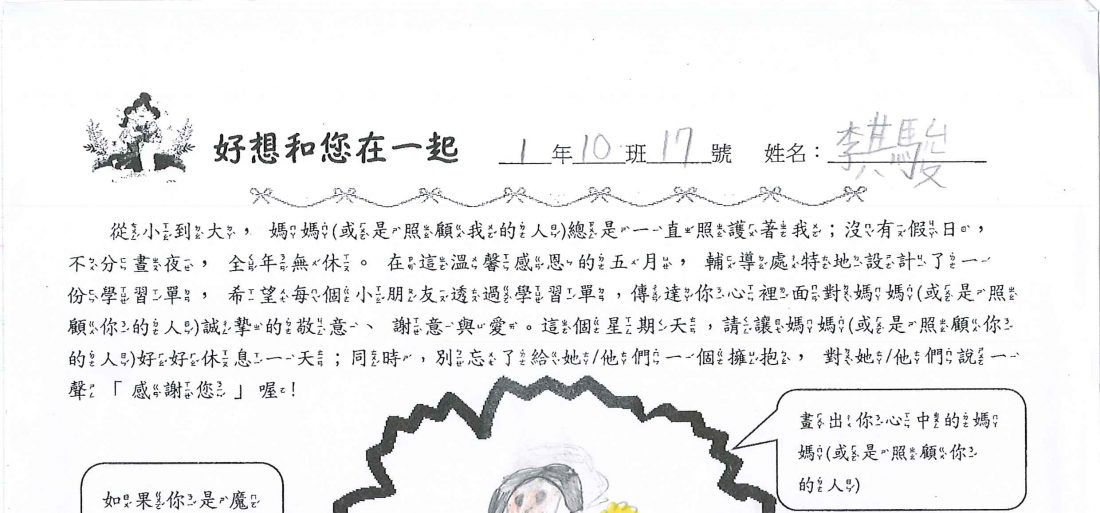 好想和您在一起 1年10班17號 姓名：李其駿
從小到大，媽媽(或是照顧我的人)總是一直照護著我；沒有假日，
不分晝夜，全年無休。在這溫馨感恩的五月，輔導處特地設計了一
份學習單，希望每個小朋友透過學習單，傳達你心裡面對媽媽(或是照
顧你的人)誠摯的敬意、謝意與愛。這個星期天，請讓媽媽(或是照顧你
的人)好好休息一天；同時，別忘了給她/他們一個擁抱，對她/他們說一
聲「感謝您」喔！
畫出你心中的媽
媽(或是照顧你
的人)
如果你是魔